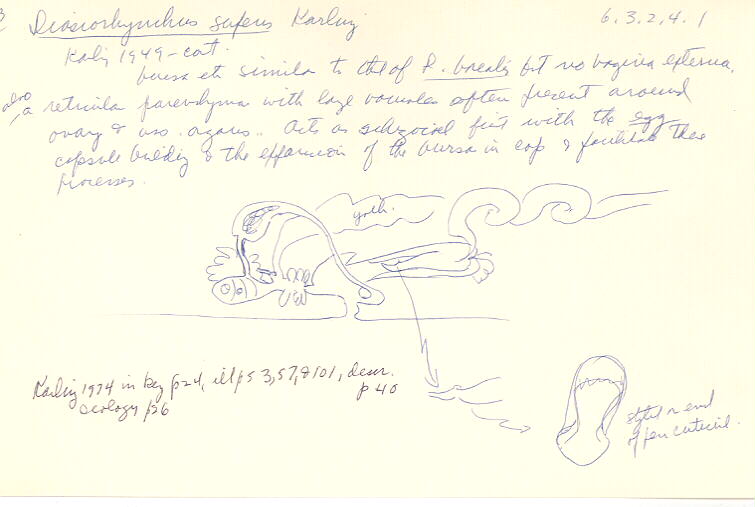 6.3.2,4.1
Karling
Karling 1949 - cont.
bursa etc similar to that of P. borealis but no vagina externa.
also a reticular parenchyma with large vacuoles often present around
ovary & organs. Acts as with the egg
capsule building & the expansion of the bursa in cop & facilitates these
processes.
Karling 1974 in key p24, ill p53, 57, & 101, descr.
p 40
ecology p26
stylet n end
of penis cuticul.